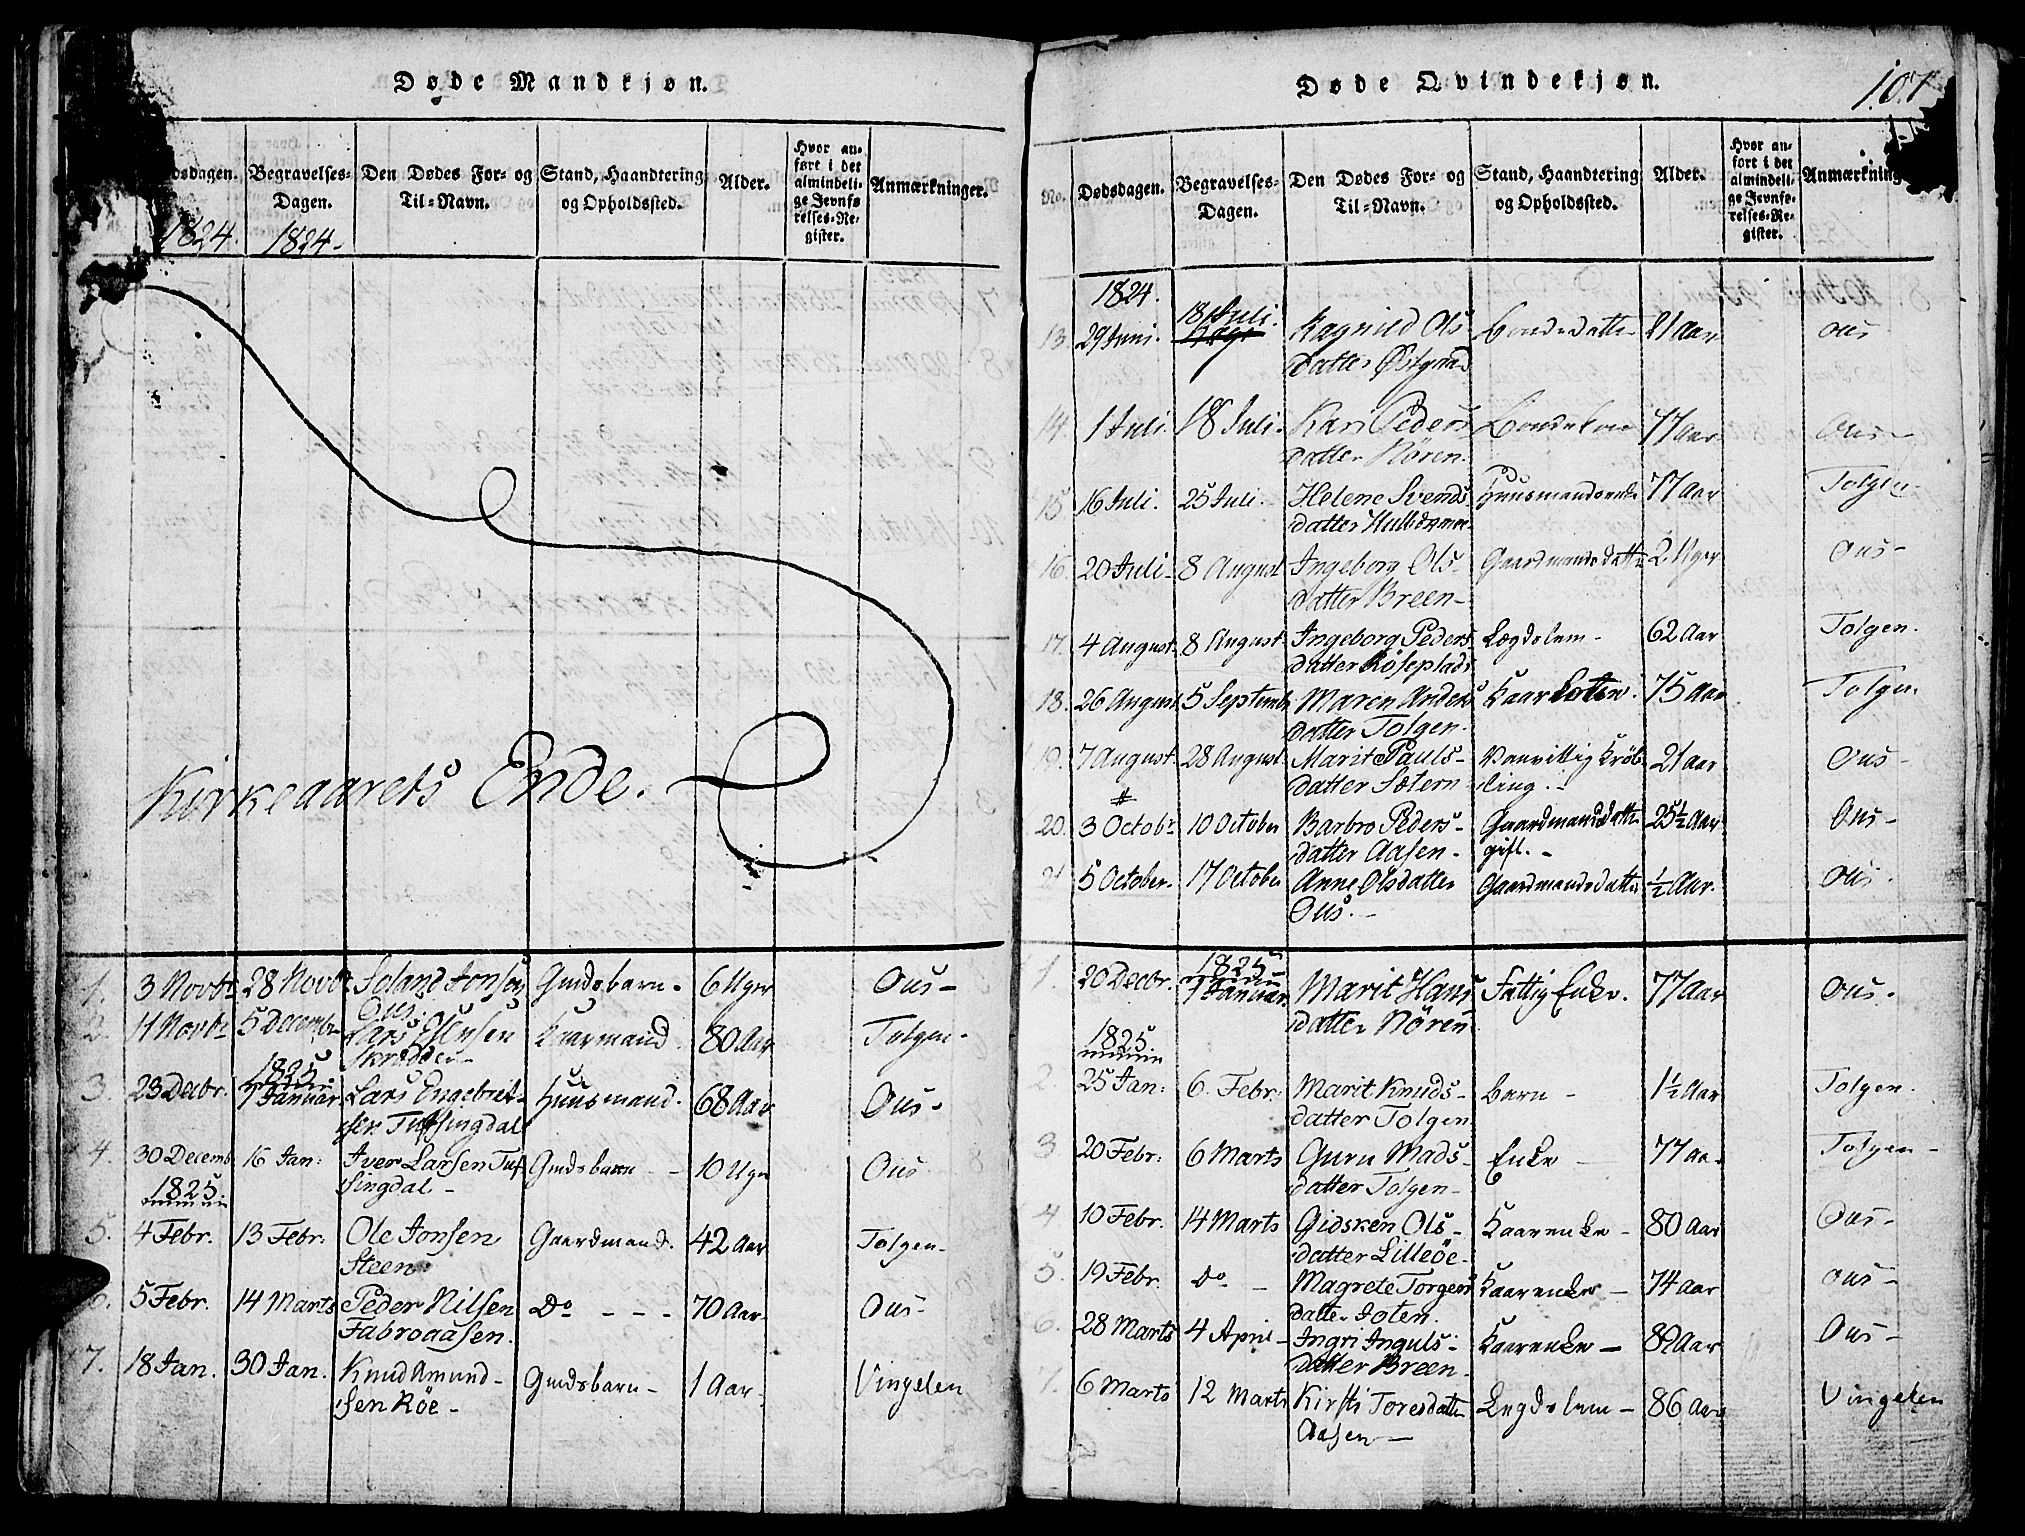 Døde Mandkjøn.
Dødsdagen. Begravelses-Dagen. Den Dødes For- og Til-Navn. Stand, Haandtering og Opholdssted. Alder. Hvor anført i det almindelige Jevnførelses-Register. Anmærkninger.
1824. 1824-
Kirkeaarets Ende.
1. 3 Novbr 28 Novbr Joland Jonsen Gmdsbarn. 6 Uger Ous-
Ous.
2. 11 Novbr 5 Decembr Lars Olensen Kaarmand. 80 Aar Tolgen-
Skrædder-
1825
3. 23 Decbr. 7 Januar Lars Engebret- Huusmand. 68 Aar Ous-
sen Tufsingdal
4. 30 Decemb 16 Jan: Iver Larsen Tuf Gmdsbarn - 10 Uger Ous
singdal-
1825
5. 4 Febr. 13 Febr: Ole Jonsen Gaardmand. 42 Aar Tolgen-
Steen
6. 5 Febr. 14 Marts Peder Nilsen Do - - - 70 Aar. Ous-
Fabroaasen.
7. 18 Jan. 30 Jan. Knud Amund- Gmdsbarn- 1 Aar- Vingelen
sen Röe-
Døde Qvindekjøn.
107
No. Dødsdagen. Begravelses-Dagen. Den Dødes For- og Til-Navn. Stand, Haandtering og Opholdssted. Alder. Hvor anført i det almindelige Jevnførelses-Register. Anmærkning
1824.
13. 29 Juni. 18 Juli. Ragnild Ols Bondedatter 21 Aar Ous
datter Østgaard
14. 1 Juli. 18 Juli. Kari Peders Bondekone 77 Aar Ous-
datter Nören.
15 16 Juli. 25 Juli. Helene Svends Huusmandsenke 77 Aar Tolgen-
datter
16. 20 Juli- 8 August Ingeborg Ols- Gaardmandsdatter 2 Uger Ous-
datter Breen-
17. 4 August. 8 August. Ingeborg Peders Lægdslem- 62 Aar Tolgen.
datter Röseplads
18. 26 August 5 Septemb Maren Anders Kaar 75 Aar Tolgen
datter Tolgen.
19. 7 August. 28 August Marit Pauls- Vanvittig Kröb 21 Aar Ous-
datter Sætern ling.-
20. 3 Octobr 10 October Barbro Peders- Gaardmandsdatter 25½ Aar Ous-
datter Aasen- gift.-
21 5 October. 17 October Anne Olsdatter Gaardmandsdatter ½ Aar. Ous.
Ous.-
1825
1. 20 Decbr. 7 Januar. Marit Hans Fattig Enke. 77 Aar Ous.
datter Nören
1825
2. 25 Jan: 6. Febr: Marit Knuds- Barn- 1½ Aar Tolgen.
datter Tolgen
3 20 Febr: 6 Marts Guru Mads- Enke - 77 Aa. Tolgen-
datter Tolgen-
4 10 Febr. 14 Marts Gidsken Ols- Kaarenke- 80 Aar Ous-
datter Lilleöe-
5. 19 Febr. Do - Magrete Torgers Kaarenke- 74 Aar Ous-
datter Joten.
6. 28 Marts 4 April- Ingri Inguls- Kaarenke- 82 Aar Ous-
datter Breen.
7. 6 Marts 12 Marts Kirsti Toresdatter Legdslem- 86 Aar Vingelen
Aasen-